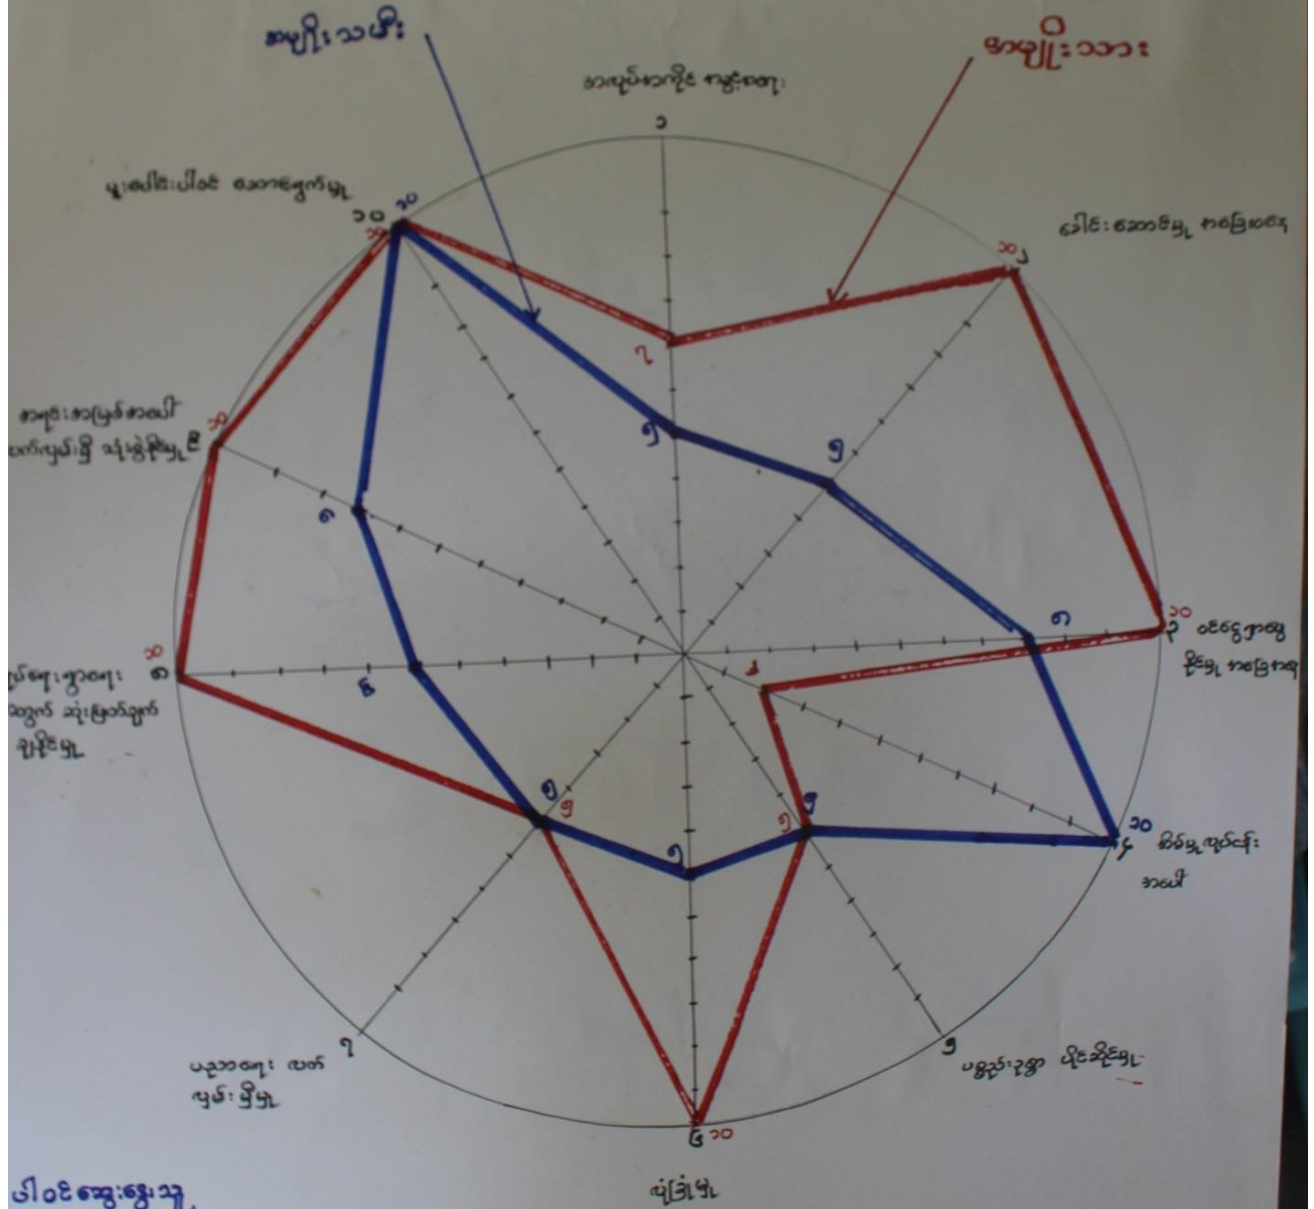 အမျိုးသမီး
အမျိုးသား
အလုပ်အကိုင် အခွင့်အရေး
၁
ပူးပေါင်းပါဝင် ဆောင်ရွက်မှု
၁၀ ၁၀
၁၀
ခေါင်းဆောင်မှု အခြေအနေ
၁၀ ၂
၇
၅
၅
အရင်းအမြစ်အပေါ်
လက်လှမ်းမှီ သုံးစွဲနိုင်မှု ၉
၁၀
၈
၁၀
၃ ဝင်ငွေရှာဖွေ
နိုင်မှု အခြေအနေ
ရပ်ရေးရွာရေး ၈
အတွက် ဆုံးဖြတ်ချက်
ချနိုင်မှု
၁၀
၆
၂
၁၀
၄ အိမ်မှုလုပ်ငန်း
အပေါ်
၅
၅
၅
၅
၅
၇
ပညာရေး လက်
လှမ်းမှီမှု
၅
ပစ္စည်းဥစ္စာ ပိုင်ဆိုင်မှု
၆ ၁၀
လုံခြုံမှု
ပါဝင်ဆွေးနွေးသူ